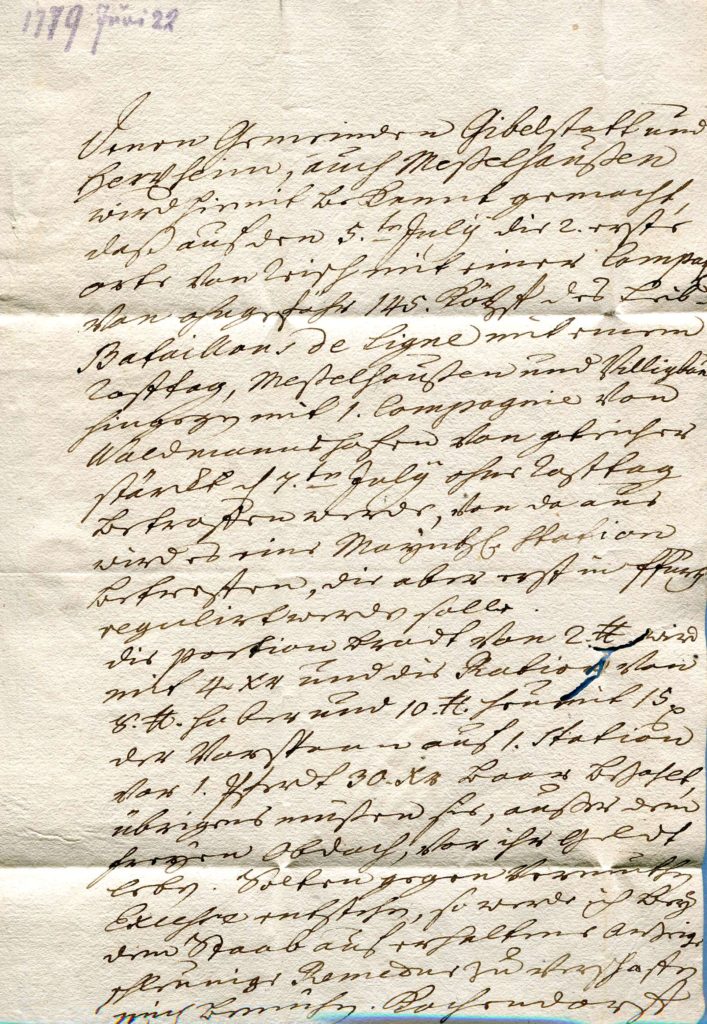 1779 Juni 22
Denen Gemeinden Gibelstatt und
Herxheim, auch Meßelhaußen
wird hiemit bekannt gemacht,
daß auf den 5.ten July die 2. erste
orte von mit einer Compag
von ohngefähr 145. Köpf des Leib-
Bataillons de Ligne mit einem
Rasttag, Meßelhaußen und
hingegen mit 1. Compagnie von
Waldmannshofen von gleicher
stärke d 7.ten July ohne Rasttag
betroffen werde, von da aus
wird es eine Mayntz. Station
betreffen, die aber erst in
regulirt werde solle.
die portion Brodt von 2. ℔ wird
mit 4. xr und die Ration von
8. ℔. haber und 10 ℔. heu mit 15
der Vorspann auf 1. Station
vor 1. Pferdt 30. xr baar bezahlt,
übrigens müßen sie, außer dem
freyen Obdach, vor ihr Geldt
leben. Solten gegen Vermuthen
Excesse entstehn, so werde ich bey
dem Staab auf erhaltene Anzeige
schleunige Remedur zu verschaffen
mich bemühen. Kochendorff